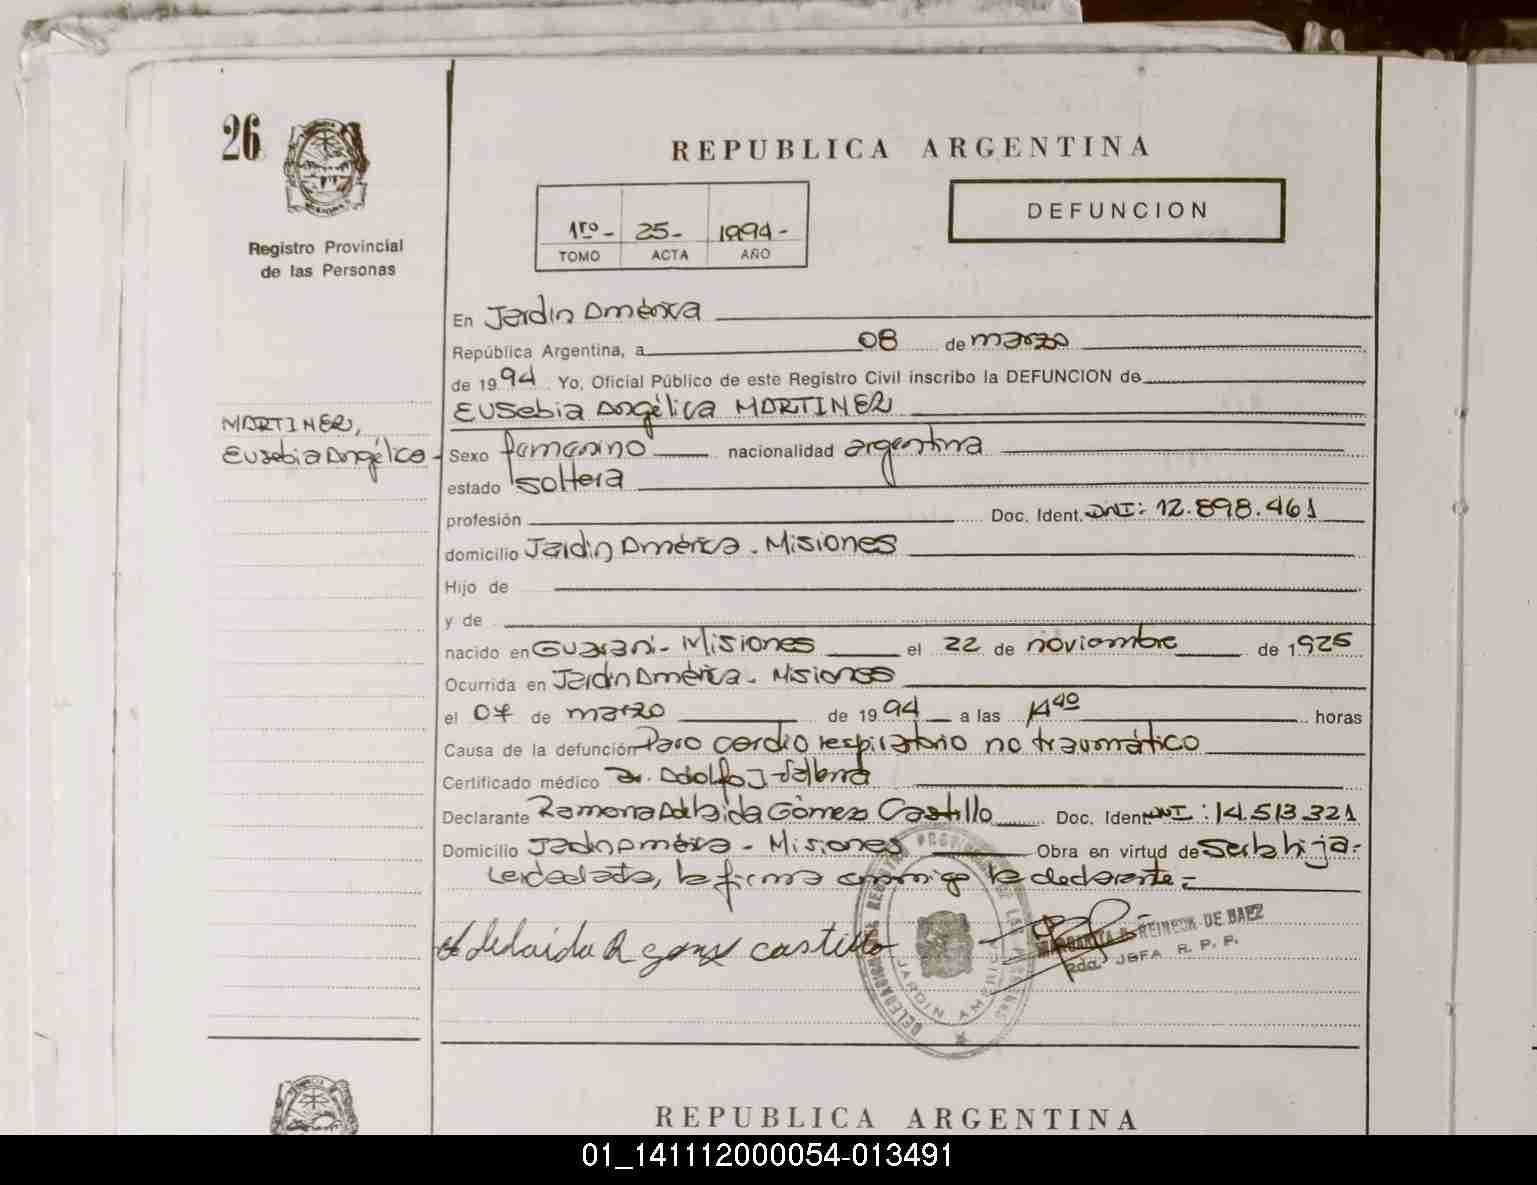 26
REPUBLICA ARGENTINA
DEFUNCION
1ro - 25 - 1994 -
TOMO ACTA AÑO
Registro Provincial
de las Personas
En Jardin América
República Argentina, a 08 de marzo
de 1994 Yo, Oficial Público de este Registro Civil inscribo la DEFUNCION de
Eusebia Angélica MARTINEZ
MARTINEZ,
Eusebia Angélica -
Sexo femenino nacionalidad argentina
estado soltera
profesión Doc. Ident. DNI: 12.898.461
domicilio Jardin América. Misiones
Hijo de
y de
nacido en Guarani - Misiones el 22 de noviembre de 1925
Ocurrida en Jardin América. Misiones
el 07 de marzo de 1994 a las 14 40 horas
Causa de la defunción Paro cardio respiratorio no traumático
Certificado médico Dr. Adolfo J.
Declarante Ramona Adelaida Gómez Castillo Doc. Ident. DNI: 14.513.321
Domicilio Jardin América - Misiones Obra en virtud de ser la hija-
Leida el acta, la firma conmigo la declarante =
Adelaida R gomez castillo
MARGARITA REINECK DE BAEZ
2da. JEFA R. P. P.
JARDIN AMERICA
REPUBLICA ARGENTINA
01_141112000054-013491